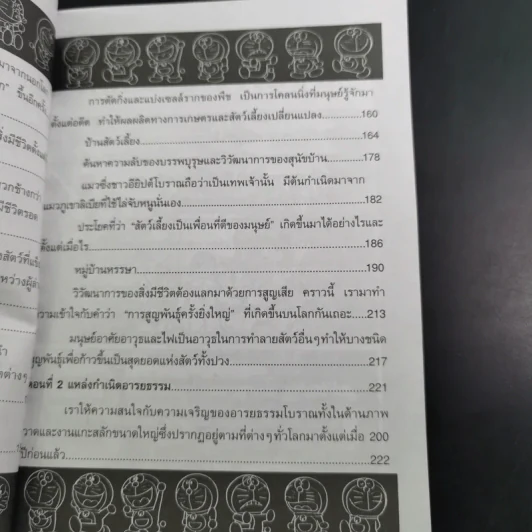 มาจากนอกโลก
ก" ขึ้นอีกครั้ง
สิ่งมีชีวิตตั้งแต่
วกช้างกว่า
มีชีวิตรอด
สัตว์ที่แข็ง
หว่างผู้ล่า
การตัดกิ่งและแบ่งเซลล์รากของพืช เป็นการโคลนนิ่งที่มนุษย์รู้จักมา
ตั้งแต่อดีต ทำให้ผลผลิตทางการเกษตรและสัตว์เลี้ยงเปลี่ยนแปลง..........160
บ้านสัตว์เลี้ยง..........164
ค้นหาความลับของบรรพบุรุษและวิวัฒนาการของสุนัขบ้าน..........178
แมวซึ่งชาวอียิปต์โบราณถือว่าเป็นเทพเจ้านั้น มีต้นกำเนิดมาจาก
แมวภูเขาลิเบียที่ใช้ไล่จับหนูนั่นเอง..........182
ประโยคที่ว่า "สัตว์เลี้ยงเป็นเพื่อนที่ดีของมนุษย์" เกิดขึ้นมาได้อย่างไรและ
ตั้งแต่เมื่อไร..........186
หมู่บ้านหรรษา..........190
วิวัฒนาการของสิ่งมีชีวิตต้องแลกมาด้วยการสูญเสีย คราวนี้ เรามาทำ
ความเข้าใจกับคำว่า "การสูญพันธุ์ครั้งยิ่งใหญ่" ที่เกิดขึ้นบนโลกกันเถอะ.....213
มนุษย์อาศัยอาวุธและไฟเป็นอาวุธในการทำลายสัตว์อื่นๆทำให้บางชนิด
สูญพันธุ์เพื่อก้าวขึ้นเป็นสุดยอดแห่งสัตว์ทั้งปวง..........217
ตอนที่ 2 แหล่งกำเนิดอารยธรรม..........221
เราให้ความสนใจกับความเจริญของอารยธรรมโบราณทั้งในด้านภาพ
วาดและงานแกะสลักขนาดใหญ่ซึ่งปรากฏอยู่ตามที่ต่างๆทั่วโลกมาตั้งแต่เมื่อ 200
ปีก่อนแล้ว..........222